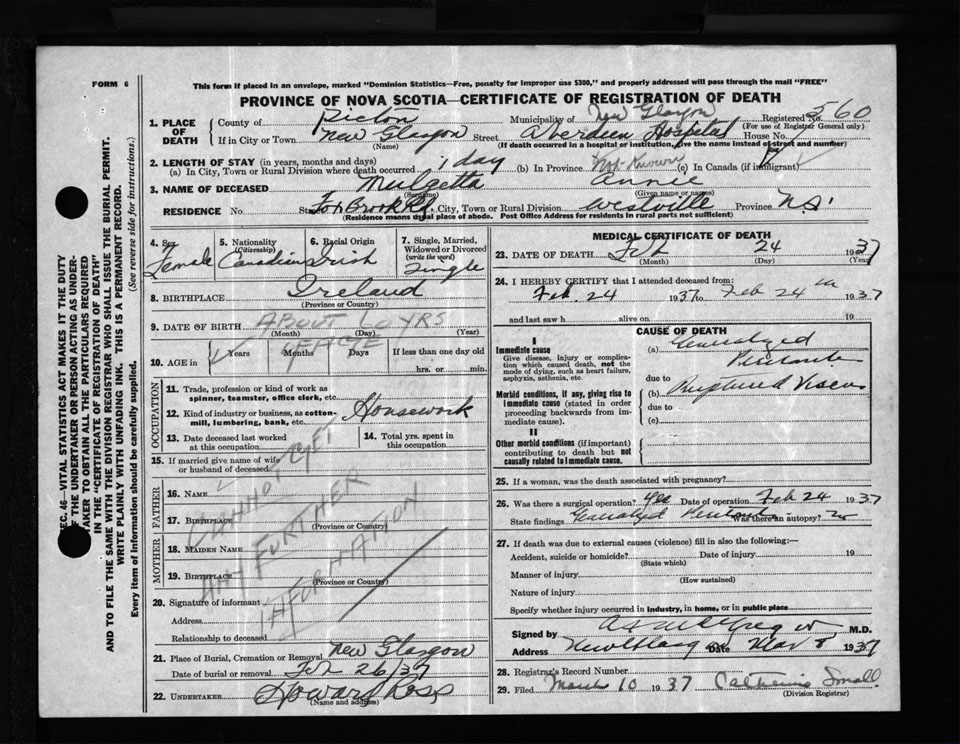 FORM 6
This form if placed in an envelope, marked "Dominion Statistics—Free, penalty for improper use $300," and properly addressed will pass through the mail "FREE"
PROVINCE OF NOVA SCOTIA—CERTIFICATE OF REGISTRATION OF DEATH
SEC. 46—VITAL STATISTICS ACT MAKES IT THE DUTY
OF THE UNDERTAKER OR PERSON ACTING AS UNDERTAKER TO OBTAIN ALL THE PARTICULARS REQUIRED
IN THE "CERTIFICATE OF REGISTRATION OF DEATH"
AND TO FILE THE SAME WITH THE DIVISION REGISTRAR WHO SHALL ISSUE THE BURIAL PERMIT.
WRITE PLAINLY WITH UNFADING INK. THIS IS A PERMANENT RECORD.
Every item of information should be carefully supplied. (See reverse side for instructions.)
1. PLACE OF DEATH County of Pictou Municipality of New Glasgow Registered No. 560
(For use of Registrar General only)
If in City or Town New Glasgow Street Aberdeen Hospital House No.
(Name) (If death occurred in a hospital or institution, give the name instead of street and number)
2. LENGTH OF STAY (in years, months and days)
(a) In City, Town or Rural Division where death occurred 1 day (b) In Province Not Known (c) In Canada (if immigrant)
3. NAME OF DECEASED Annie
(Surname) (Given name or names)
RESIDENCE No. Street Fox Brook Rd. City, Town or Rural Division Westville Province N.S.
(Residence means usual place of abode. Post Office Address for residents in rural parts not sufficient)
4. Sex Female
5. Nationality (Citizenship) Canadian
6. Racial Origin Irish
7. Single, Married, Widowed or Divorced (write the word) Single
8. BIRTHPLACE Ireland
(Province or Country)
9. DATE OF BIRTH ABOUT 60 YRS
(Month) (Day) (Year)
10. AGE in Years Months Days If less than one day old
hrs. or min.
OCCUPATION
11. Trade, profession or kind of work as spinner, teamster, office clerk, etc.
12. Kind of industry or business, as cotton-mill, lumbering, bank, etc. Housework
13. Date deceased last worked at this occupation
14. Total yrs. spent in this occupation
15. If married give name of wife or husband of deceased
FATHER
16. NAME
17. BIRTHPLACE
(Province or Country)
MOTHER
18. MAIDEN NAME
19. BIRTHPLACE
(Province or Country)
CANNOT GET
ANY FURTHER
INFORMATION
20. Signature of informant
Address
Relationship to deceased
21. Place of Burial, Cremation or Removal New Glasgow
Date of burial or removal Feb 26/37
22. UNDERTAKER Howard Ross
(Name and address)
MEDICAL CERTIFICATE OF DEATH
23. DATE OF DEATH Feb 24 1937
(Month) (Day) (Year)
24. I HEREBY CERTIFY that I attended deceased from:
Feb. 24 1937 to Feb 24th 1937
and last saw h alive on 19
CAUSE OF DEATH
I
Immediate cause
Give disease, injury or complication which caused death, not the mode of dying, such as heart failure, asphyxia, asthenia, etc.
(a) Generalized Peritonitis
due to
Morbid conditions, if any, giving rise to immediate cause (stated in order proceeding backwards from immediate cause)
(b) Ruptured Viscus
due to
(c)
II
Other morbid conditions (if important) contributing to death but not causally related to immediate cause.
25. If a woman, was the death associated with pregnancy?
26. Was there a surgical operation? Yes Date of operation Feb 24 1937
State findings Generalized Peritonitis Was there an autopsy? no
27. If death was due to external causes (violence) fill in also the following:—
Accident, suicide or homicide? Date of injury 19
(State which)
Manner of injury
(How sustained)
Nature of injury
Specify whether injury occurred in industry, in home, or in public place
Signed by M.D.
Address New Glasgow Date Mar 8 1937
28. Registrar's Record Number
29. Filed March 10 1937 Catherine Small
(Division Registrar)